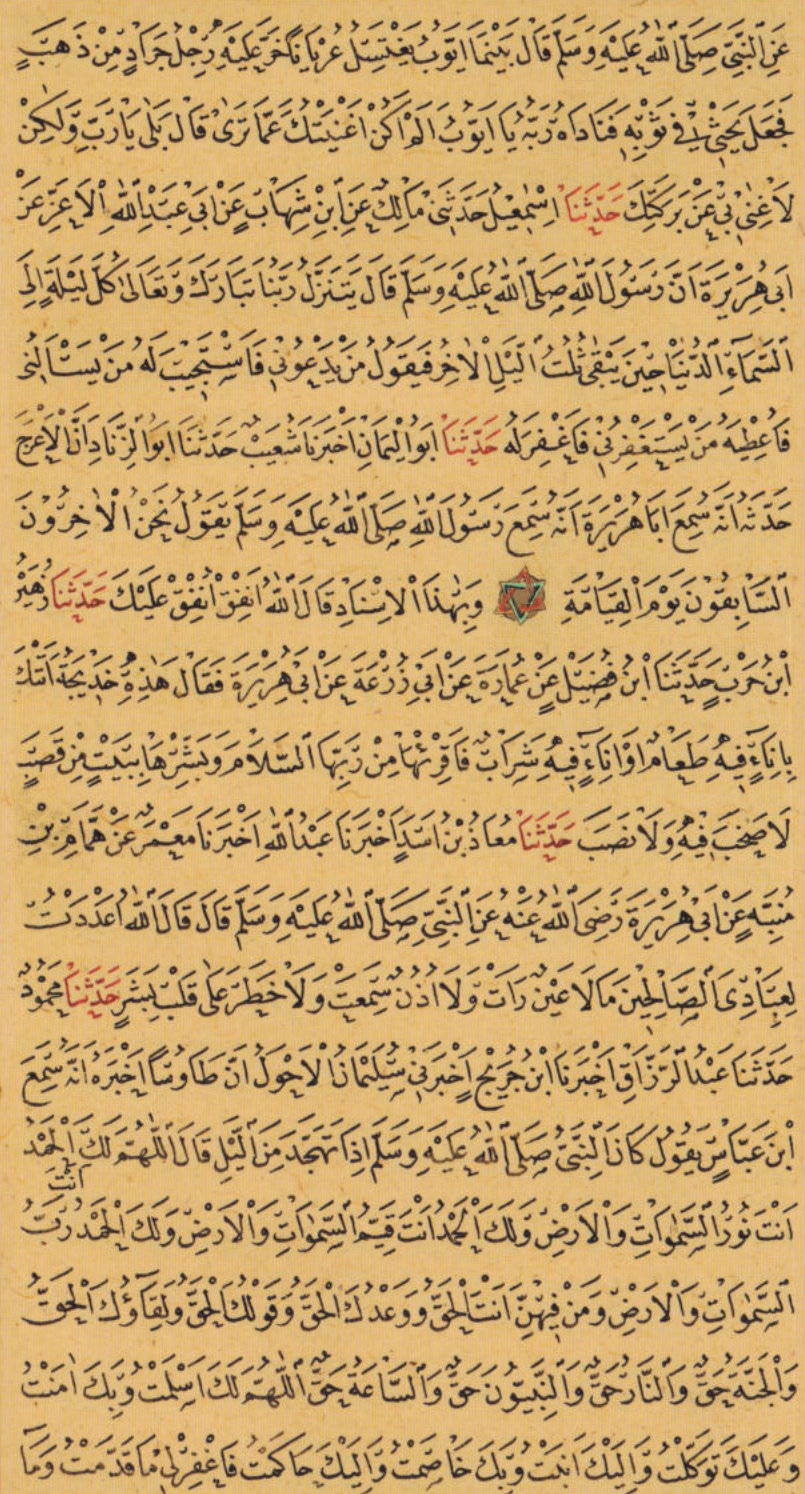 عَنِ النَّبِيِّ صَلَّى اللّٰهُ عَلَيْهِ وَسَلَّمَ قَالَ بَيْنَمَا اَيُّوبُ يَغْتَسِلُ عُرْيَانًا خَرَّ عَلَيْهِ رِجْلُ جَرَادٍ مِنْ ذَهَبٍ
فَجَعَلَ يَحْثِي فِي ثَوْبِهِ فَنَادَاهُ رَبُّهُ يَا اَيُّوبُ اَلَمْ اَكُنْ اَغْنَيْتُكَ عَمَّا تَرَى قَالَ بَلٰى يَا رَبِّ وَلٰكِنْ
لَا غِنٰى بِي عَنْ بَرَكَتِكَ حَدَّثَنَا اِسْمٰعِيلُ حَدَّثَنِي مَالِكٌ عَنِ ابْنِ شِهَابٍ عَنْ اَبِي عَبْدِ اللّٰهِ الْاَغَرِّ عَنْ
اَبِي هُرَيْرَةَ اَنَّ رَسُولَ اللّٰهِ صَلَّى اللّٰهُ عَلَيْهِ وَسَلَّمَ قَالَ يَتَنَزَّلُ رَبُّنَا تَبَارَكَ وَتَعَالٰى كُلَّ لَيْلَةٍ اِلَى
السَّمَاءِ الدُّنْيَا حِينَ يَبْقٰى ثُلُثُ الَّيْلِ الْاٰخِرُ فَيَقُولُ مَنْ يَدْعُونِي فَاَسْتَجِيبَ لَهُ مَنْ يَسْاَلُنِي
فَاُعْطِيَهُ مَنْ يَسْتَغْفِرُنِي فَاَغْفِرَ لَهُ حَدَّثَنَا اَبُو الْيَمَانِ اَخْبَرَنَا شُعَيْبٌ حَدَّثَنَا اَبُو الزِّنَادِ اَنَّ الْاَعْرَجَ
حَدَّثَهُ اَنَّهُ سَمِعَ اَبَا هُرَيْرَةَ اَنَّهُ سَمِعَ رَسُولَ اللّٰهِ صَلَّى اللّٰهُ عَلَيْهِ وَسَلَّمَ يَقُولُ نَحْنُ الْاٰخِرُونَ
السَّابِقُونَ يَوْمَ الْقِيَامَةِ وَبِهٰذَا الْاِسْنَادِ قَالَ اللّٰهُ اَنْفِقْ اُنْفِقْ عَلَيْكَ حَدَّثَنَا زُهَيْرُ
ابْنُ حَرْبٍ حَدَّثَنَا ابْنُ فُضَيْلٍ عَنْ عُمَارَةَ عَنْ اَبِي زُرْعَةَ عَنْ اَبِي هُرَيْرَةَ فَقَالَ هٰذِهِ خَدِيجَةُ اَتَتْكَ
بِاِنَاءٍ فِيهِ طَعَامٌ اَوْ اِنَاءٍ فِيهِ شَرَابٌ فَاَقْرِئْهَا مِنْ رَبِّهَا السَّلَامَ وَبَشِّرْهَا بِبَيْتٍ مِنْ قَصَبٍ
لَا صَخَبَ فِيهِ وَلَا نَصَبَ حَدَّثَنَا مُعَاذُ بْنُ اَسَدٍ اَخْبَرَنَا عَبْدُ اللّٰهِ اَخْبَرَنَا مَعْمَرٌ عَنْ هَمَّامِ بْنِ
مُنَبِّهٍ عَنْ اَبِي هُرَيْرَةَ رَضِيَ اللّٰهُ عَنْهُ عَنِ النَّبِيِّ صَلَّى اللّٰهُ عَلَيْهِ وَسَلَّمَ قَالَ قَالَ اللّٰهُ اَعْدَدْتُ
لِعِبَادِيَ الصَّالِحِينَ مَا لَا عَيْنٌ رَاَتْ وَلَا اُذُنٌ سَمِعَتْ وَلَا خَطَرَ عَلٰى قَلْبِ بَشَرٍ حَدَّثَنَا مَحْمُودٌ
حَدَّثَنَا عَبْدُ الرَّزَّاقِ اَخْبَرَنَا ابْنُ جُرَيْجٍ اَخْبَرَنِي سُلَيْمَانُ الْاَحْوَلُ اَنَّ طَاوُسًا اَخْبَرَهُ اَنَّهُ سَمِعَ
ابْنَ عَبَّاسٍ يَقُولُ كَانَ النَّبِيُّ صَلَّى اللّٰهُ عَلَيْهِ وَسَلَّمَ اِذَا تَهَجَّدَ مِنَ الَّيْلِ قَالَ اللّٰهُمَّ لَكَ الْحَمْدُ
اَنْتَ
اَنْتَ نُورُ السَّمٰوَاتِ وَالْاَرْضِ وَلَكَ الْحَمْدُ اَنْتَ قَيِّمُ السَّمٰوَاتِ وَالْاَرْضِ وَلَكَ الْحَمْدُ رَبُّ
السَّمٰوَاتِ وَالْاَرْضِ وَمَنْ فِيهِنَّ اَنْتَ الْحَقُّ وَوَعْدُكَ الْحَقُّ وَقَوْلُكَ الْحَقُّ وَلِقَاؤُكَ الْحَقُّ
وَالْجَنَّةُ حَقٌّ وَالنَّارُ حَقٌّ وَالنَّبِيُّونَ حَقٌّ وَالسَّاعَةُ حَقٌّ اَللّٰهُمَّ لَكَ اَسْلَمْتُ وَبِكَ اٰمَنْتُ
وَعَلَيْكَ تَوَكَّلْتُ وَاِلَيْكَ اَنَبْتُ وَبِكَ خَاصَمْتُ وَاِلَيْكَ حَاكَمْتُ فَاغْفِرْ لِي مَا قَدَّمْتُ وَمَا